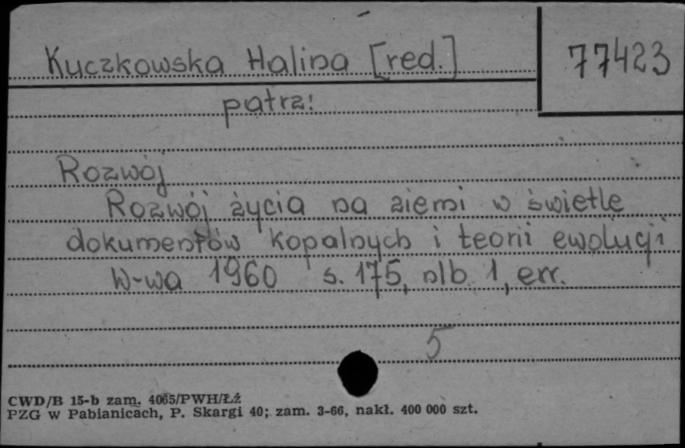 Kuczkowska Halina [red.]
77423
patrz:
Rozwój
Rozwój życia na ziemi w świetle
dokumentów kopalnych i teorii ewolucji
W-wa 1960 s. 175, nlb. 1, err.
5
CWD/B 15-b zam. 4065/PWH/Łź
PZG w Pabianicach, P. Skargi 40; zam. 3-66, nakł. 400 000 szt.